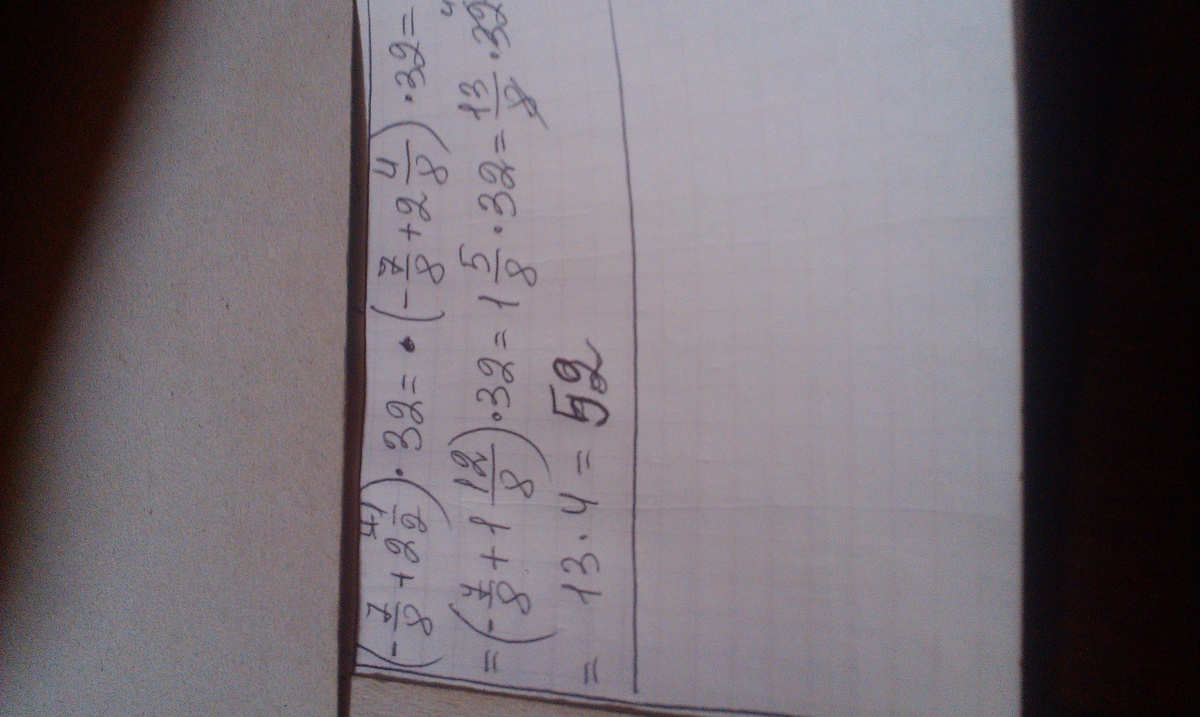 (-7/8 + 2 1/2 ⁴⁾) · 32 = · (-7/8 + 2 4/8) · 32 =
= (-7/8 + 1 12/8) · 32 = 1 5/8 · 32 = 13/8 · 32 ⁴
= 13 · 4 = 52